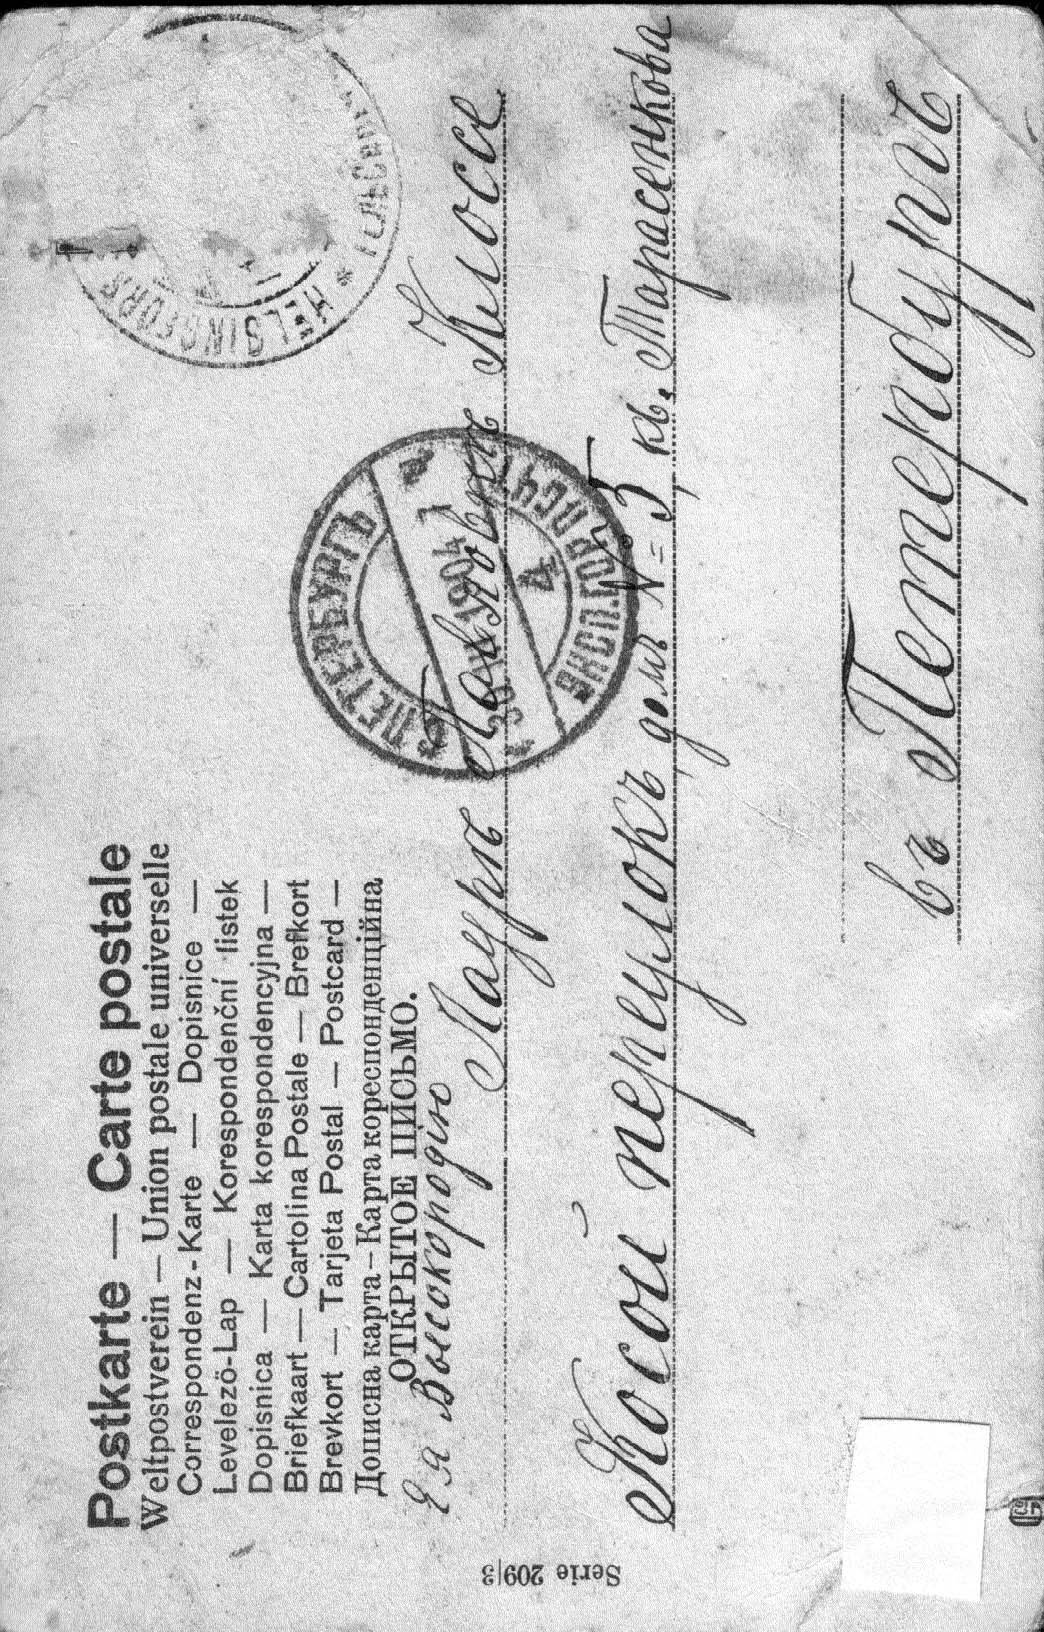 Postkarte — Carte postale
Weltpostverein — Union postale universelle
Correspondenz-Karte — Dopisnice —
Levelező-Lap — Korespondenční lístek
Dopisnica — Karta korespondencyjna —
Briefkaart — Cartolina Postale — Brefkort
Brevkort — Tarjeta Postal — Postcard —
Дописна карта — Карта кореспонденційна
ОТКРЫТОЕ ПИСЬМО.
HELSINGFORS * ГЕЛЬСИНГ
С.ПЕТЕРБУРГЪ
1904
4
ЭКСП.ГОР.ПОЧ
Ея Высокородію
Лаурѣ Павловнѣ Клоссе
Косой переулокъ домъ № 5 кв. Тарасенкова
въ Петербургѣ
Serie 209|3